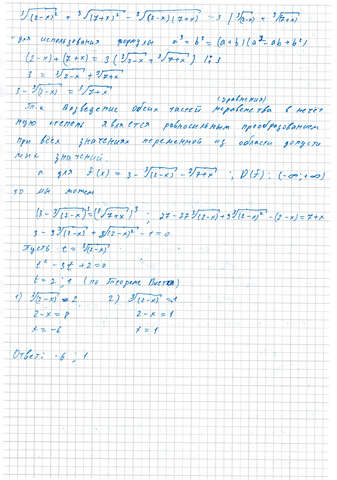 ∛(2-x)² + ∛(7+x)² - ∛(2-x)(7+x) = 3 | (∛2-x + ∛7+x)
для использования формулы a³ + b³ = (a+b)(a² - ab + b²)
(2-x) + (7+x) = 3 (∛2-x + ∛7+x) |:3
3 = ∛2-x + ∛7+x
3 - ∛2-x = ∛7+x
(уравнения)
Т.к. возведение обеих частей неравенства в нечёт
ную степень является равносильным преобразованием
при всех значениях переменной из области допусти
мых значений
а для f(x) = 3 - ∛2-x - ∛7+x , D(f): (-∞;+∞)
то мы можем
(3 - ∛2-x)³ = (∛7+x)³ ; 27 - 27∛2-x + 9∛(2-x)² - (2-x) = 7+x
3 - 3∛2-x + ∛(2-x)² - 1 = 0
Пусть t = ∛2-x
t² - 3t + 2 = 0
t = 2; 1 (по Теореме Виета)
1) ∛2-x = 2 2) ∛2-x = 1
2-x = 8 2-x = 1
x = -6 x = 1
Ответ: -6; 1